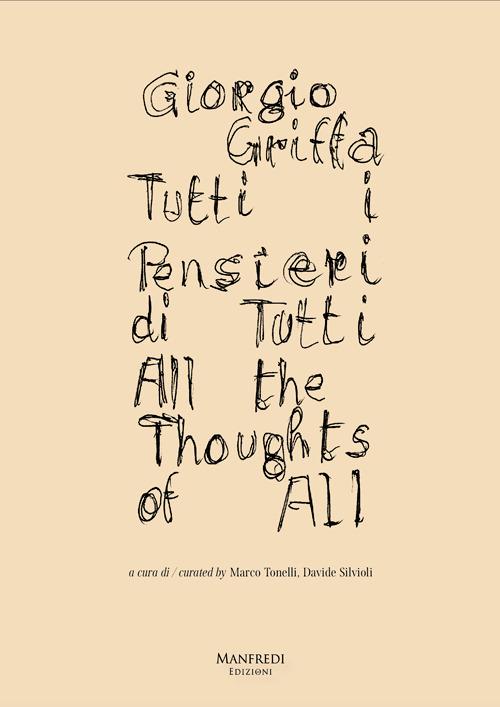 Giorgio
Griffa
Tutti i
Pensieri
di Tutti
All the
Thoughts
of All
a cura di / curated by Marco Tonelli, Davide Silvioli
MANFREDI
EDIZIONI